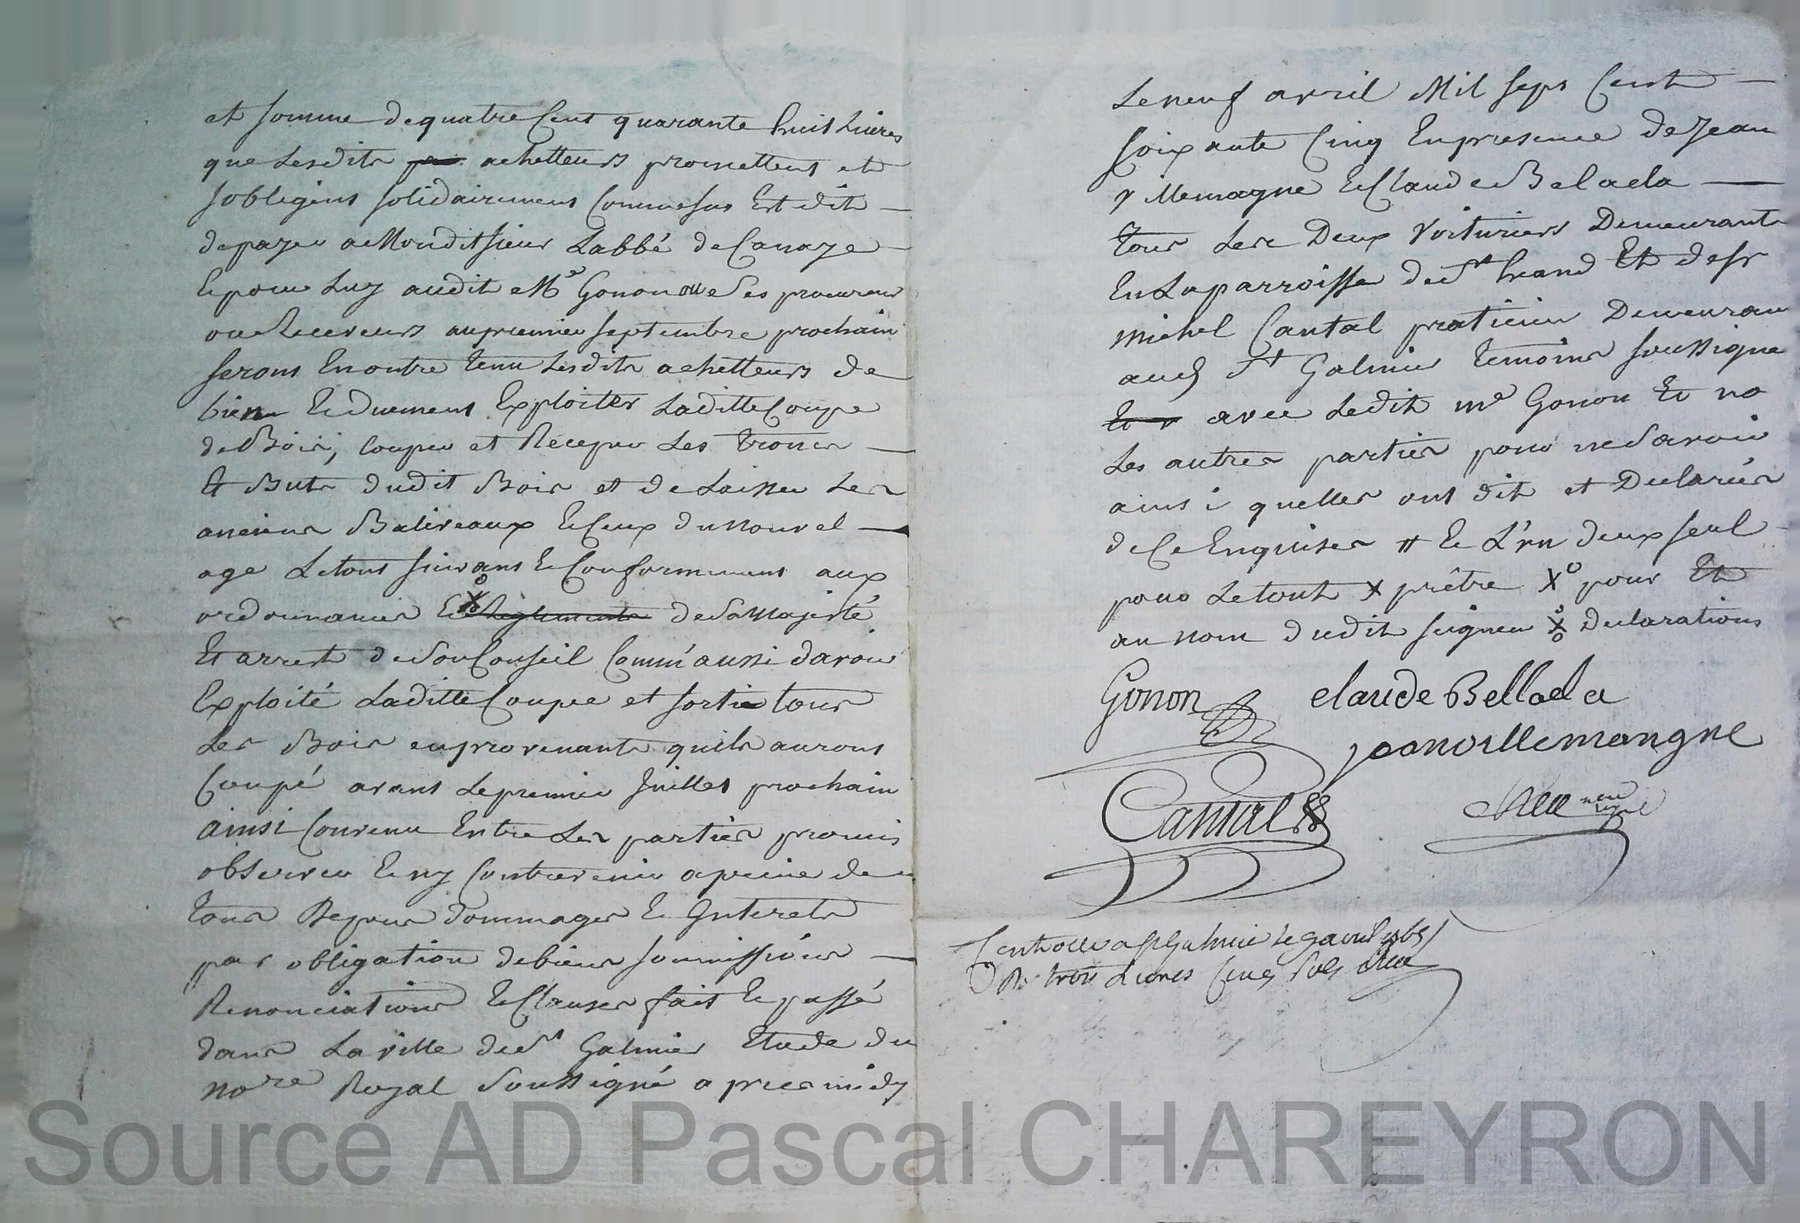 et somme de quatre Cent quarante huit Livres
que Lesdits achetteurs promettent et
sobligent solidairement Comme sus Est dit
de payer a Mondit sieur Labbé de Canaye
Et pour Luy audit Me Gonon ou a ses procureur
ou Receveurs au premier septembre prochain
seront En outre tenu Lesdits achetteurs de
bien Et duement Exploiter Laditte Coupe
de Bois, couper et Receper Les troncs
Et Buts dudit Bois et de Laisser Les
anciens Baliveaux Et Ceux du nouvel
age Le tout suivant Et Conformement aux
ordonnances Et Reglements de Sa Majesté
Et arrest de Son Conseil Comm'aussi davoir
Exploité Laditte Coupe et sortie tous
Les Bois en provenants quils auront
Coupé avant Le premier Juillet prochain
ainsi Convenu Entre Les parties promis
observer Et ny Contrevenir a peine de
tous Depens dommages Et Interets
par obligation de biens soumissions
Renonciations Et Clauses fait Et passé
dans La ville de St Galmier Etude du
nore Royal Soussigné apres midy
Le neuf avril Mil sept Cent
soixante Cinq En presence de Jean
villemagne Et Claude Belacla
tous Les Deux Voituriers Demeurants
En La parroisse de St heand Et de sr
michel Cantal praticien Demeurant
aud St Galmier temoins soussigne
Et avec Ledit me Gonon Et no
Les autres parties pour ne Savoir
ainsi quelles ont dit et Declarées
de Ce Enquises # Et L'un deux seul
pour Le tout X prêtre X° pour Et
au nom dudit seigneur X declarations
Gonon claude Bellacla
jean villemangne
Cantal
Controllé a St Galmier le 9 avril 1765
R. trois Livres Cinq sols
Source AD Pascal CHAREYRON